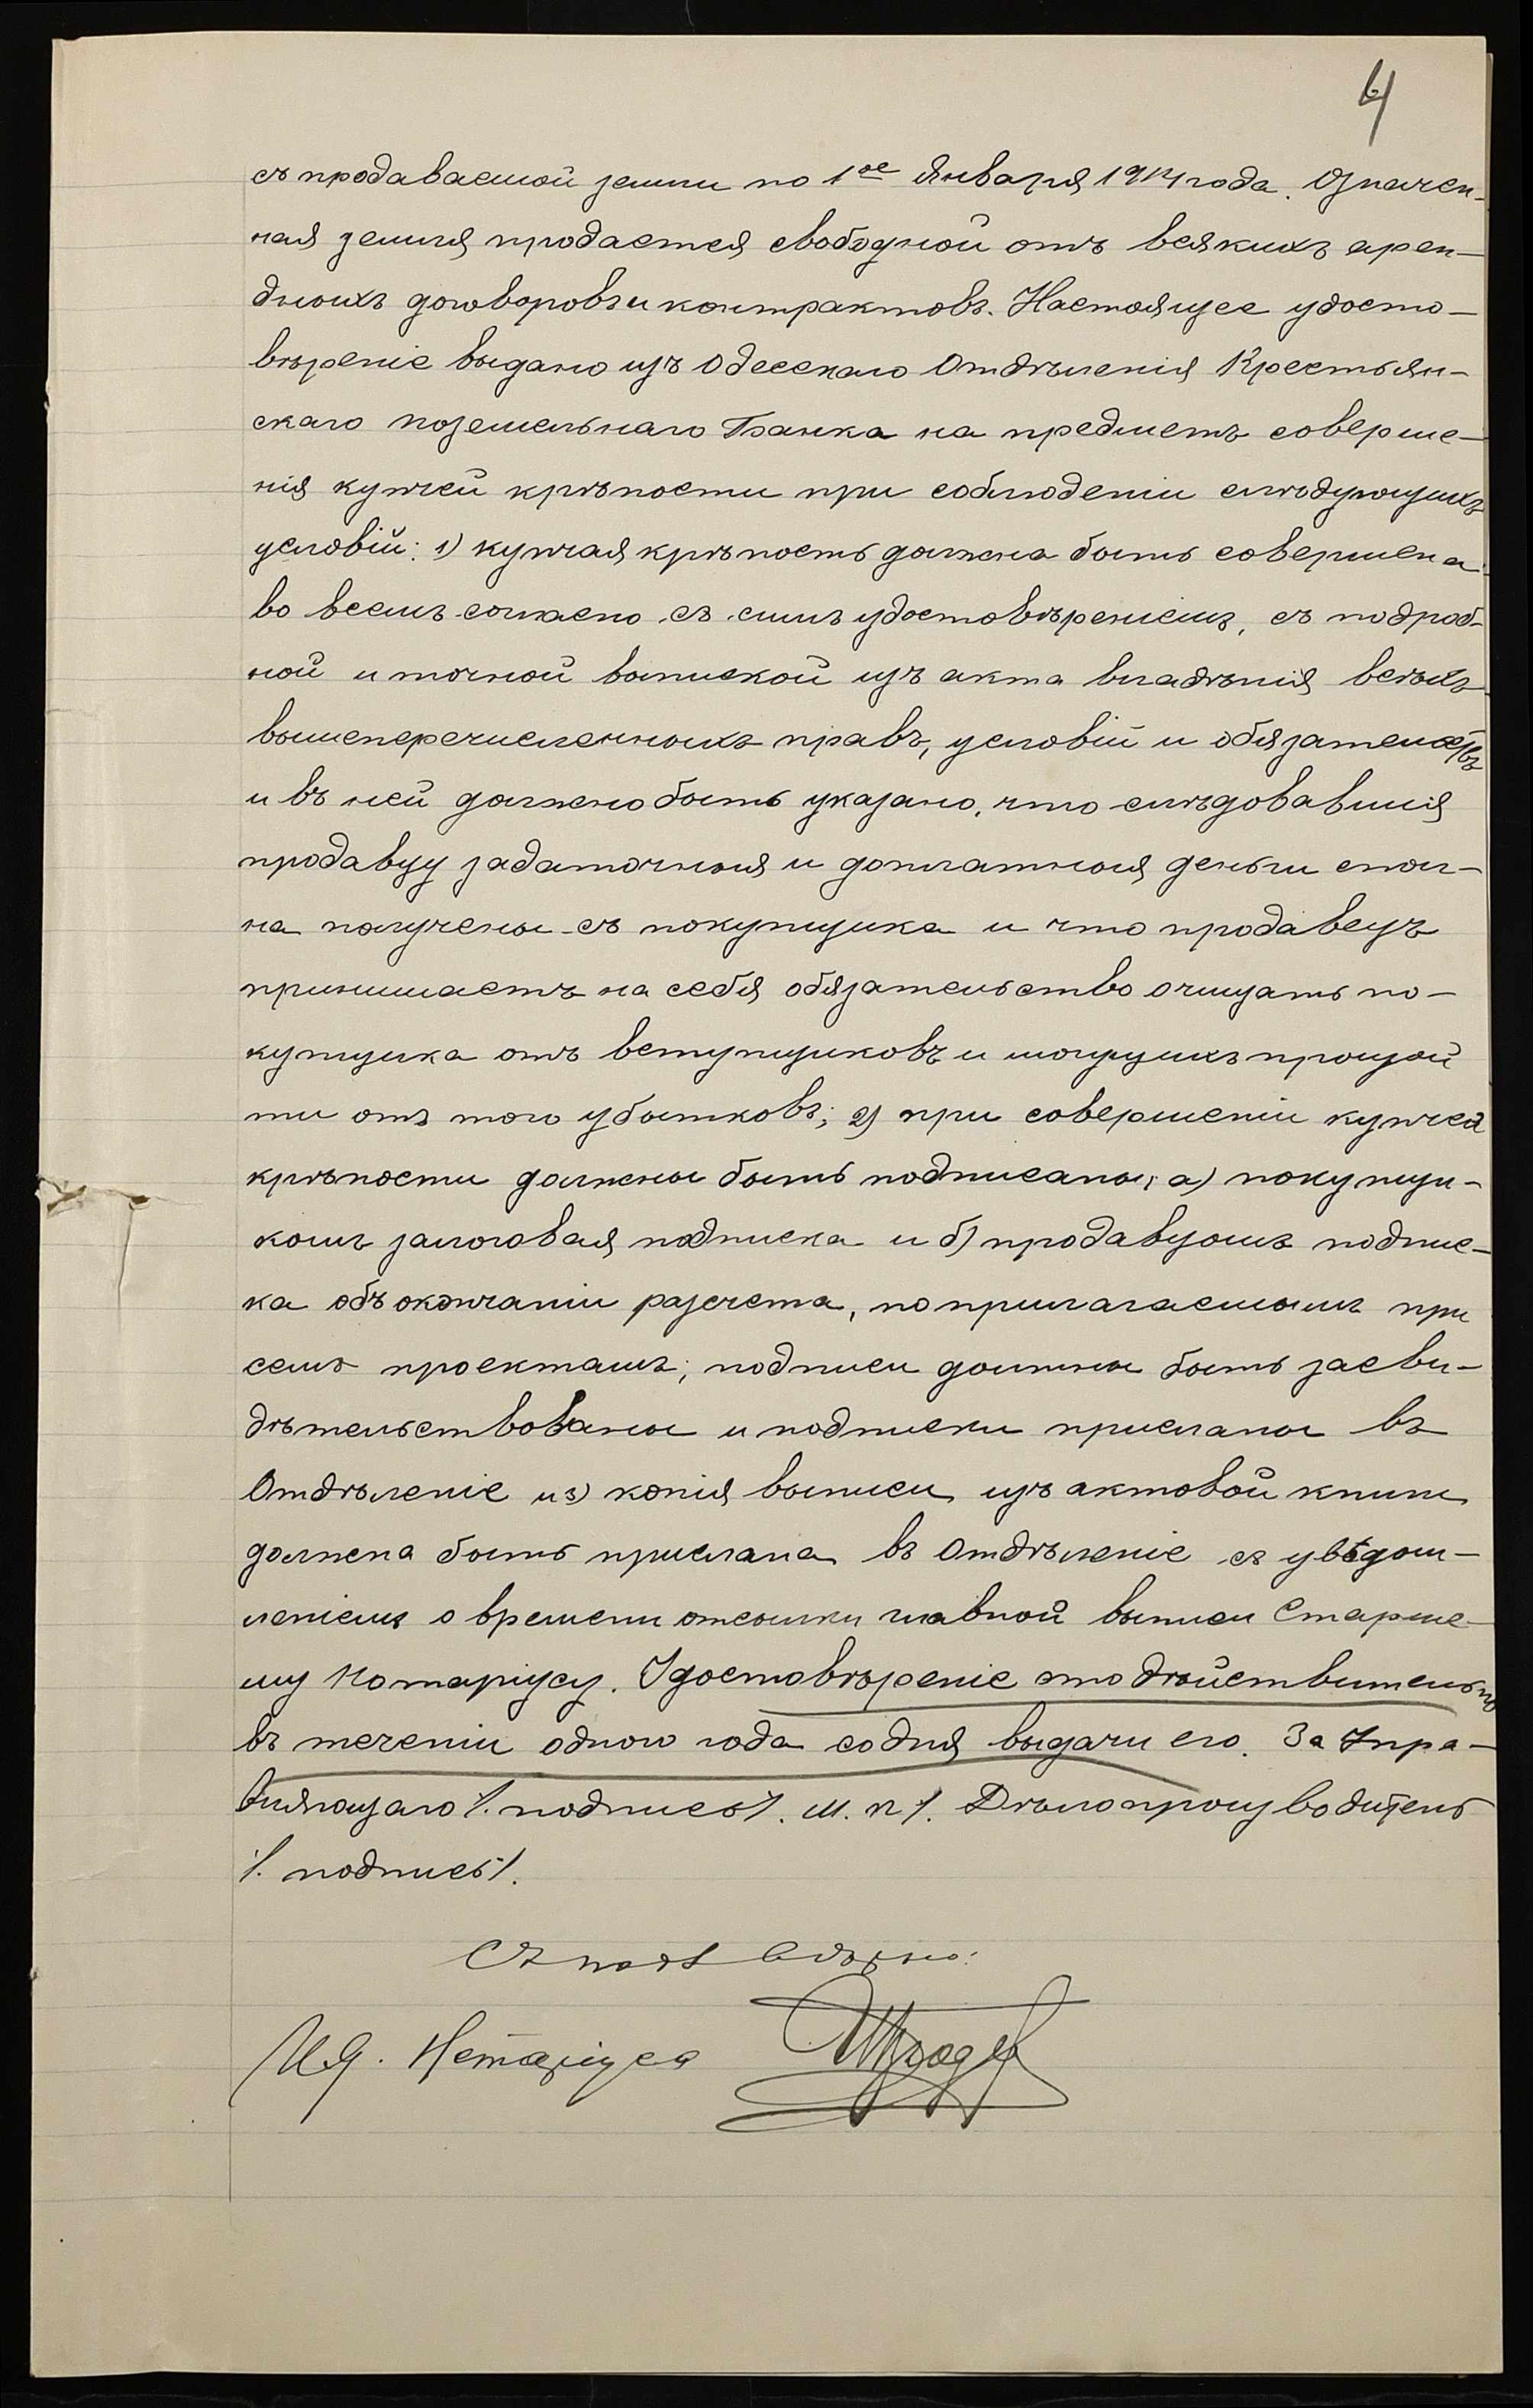 4
съ продаваемой земли по 1ое Января 1914 года. Означен-
ная земля продается свободной отъ всякихъ арен-
дныхъ договоровъ и контрактовъ. Настоящее удосто-
вѣреніе выдано изъ Одесскаго Отдѣленія Крестьян-
скаго Поземельнаго Банка на предметъ соверше-
нія купчей крѣпости при соблюденіи слѣдующихъ
условій: 1) купчая крѣпость должна быть совершена
во всемъ согласно съ симъ удостовѣреніемъ, съ подроб-
ной и точной выпиской изъ акта владѣнія всѣхъ
вышеперечисленныхъ правъ, условій и обязательствъ
и въ ней должно быть указано, что слѣдовавшія
продавцу задаточныя и доплатныя деньги спол-
на получены съ покупщика и что продавецъ
принимаетъ на себя обязательство очищать по-
купщика отъ вступщиковъ и могущихъ произой
ти отъ того убытковъ; 2) при совершеніи купчей
крѣпости должны быть подписаны: а) покупщи-
комъ залоговая подписка и б) продавцомъ подпис-
ка объ окончаніи разсчета, по прилагаемымъ при
семъ проектамъ; подписи должны быть засви-
дѣтельствованы и подписки присланы въ
Отдѣленіе и 3) копія выписи изъ актовой книги
должна быть прислана въ Отдѣленіе съ увѣдом-
леніемъ о времени отсылки главной выписи Старше-
му Нотаріусу. Удостовѣреніе это дѣйствительно
въ теченіи одного года со дня выдачи его. За Упра-
вляющаго /. подпись/. М. П /. Дѣлопроизводитель
/. подпись/.
Съ подл вѣрно:
И. д. Нотаріуса